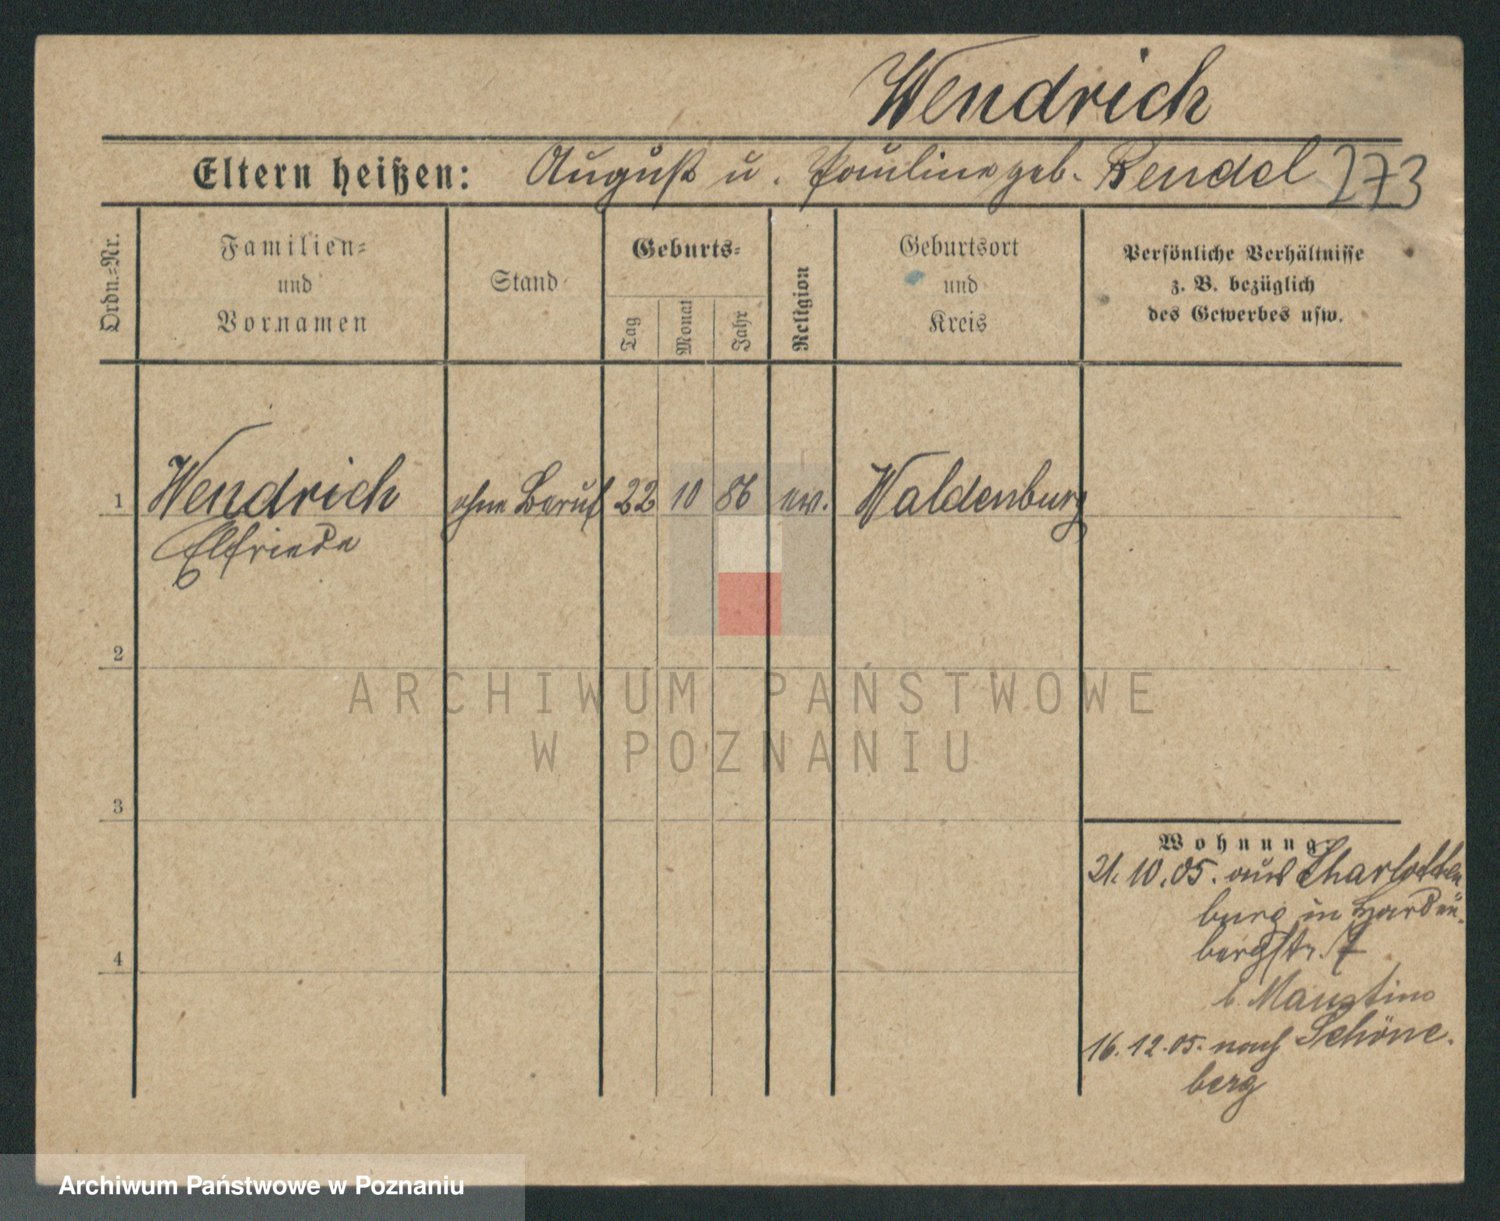 Wendrich
Eltern heißen: August u. Pauline geb. Rendel 273
Ordn.=Nr.
Familien=
und
Vornamen
Stand
Geburts=
Tag
Monat
Jahr
Religion
Geburtsort
und
Kreis
Persönliche Verhältnisse
z. B. bezüglich
des Gewerbes usw.
1 Wendrich ohne Beruf 22 10 86 ev. Waldenburg
Elfriede
2
ARCHIWUM PAŃSTWOWE
W POZNANIU
3
Wohnung.
21. 10. 05. aus Charlotten
burg in Harden-
bergstr. 7
b.
4
16. 12. 05. nach Schöne-
berg
Archiwum Państwowe w Poznaniu